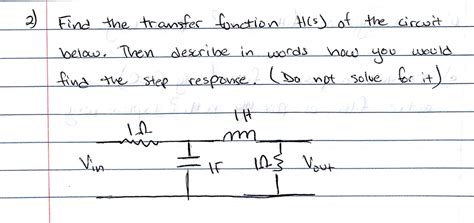 2) Find the transfer function H(s) of the circuit
below. Then describe in words how you would
find the step response. (Do not solve for it)
1H
1Ω
Vin
1F
1Ω
Vout